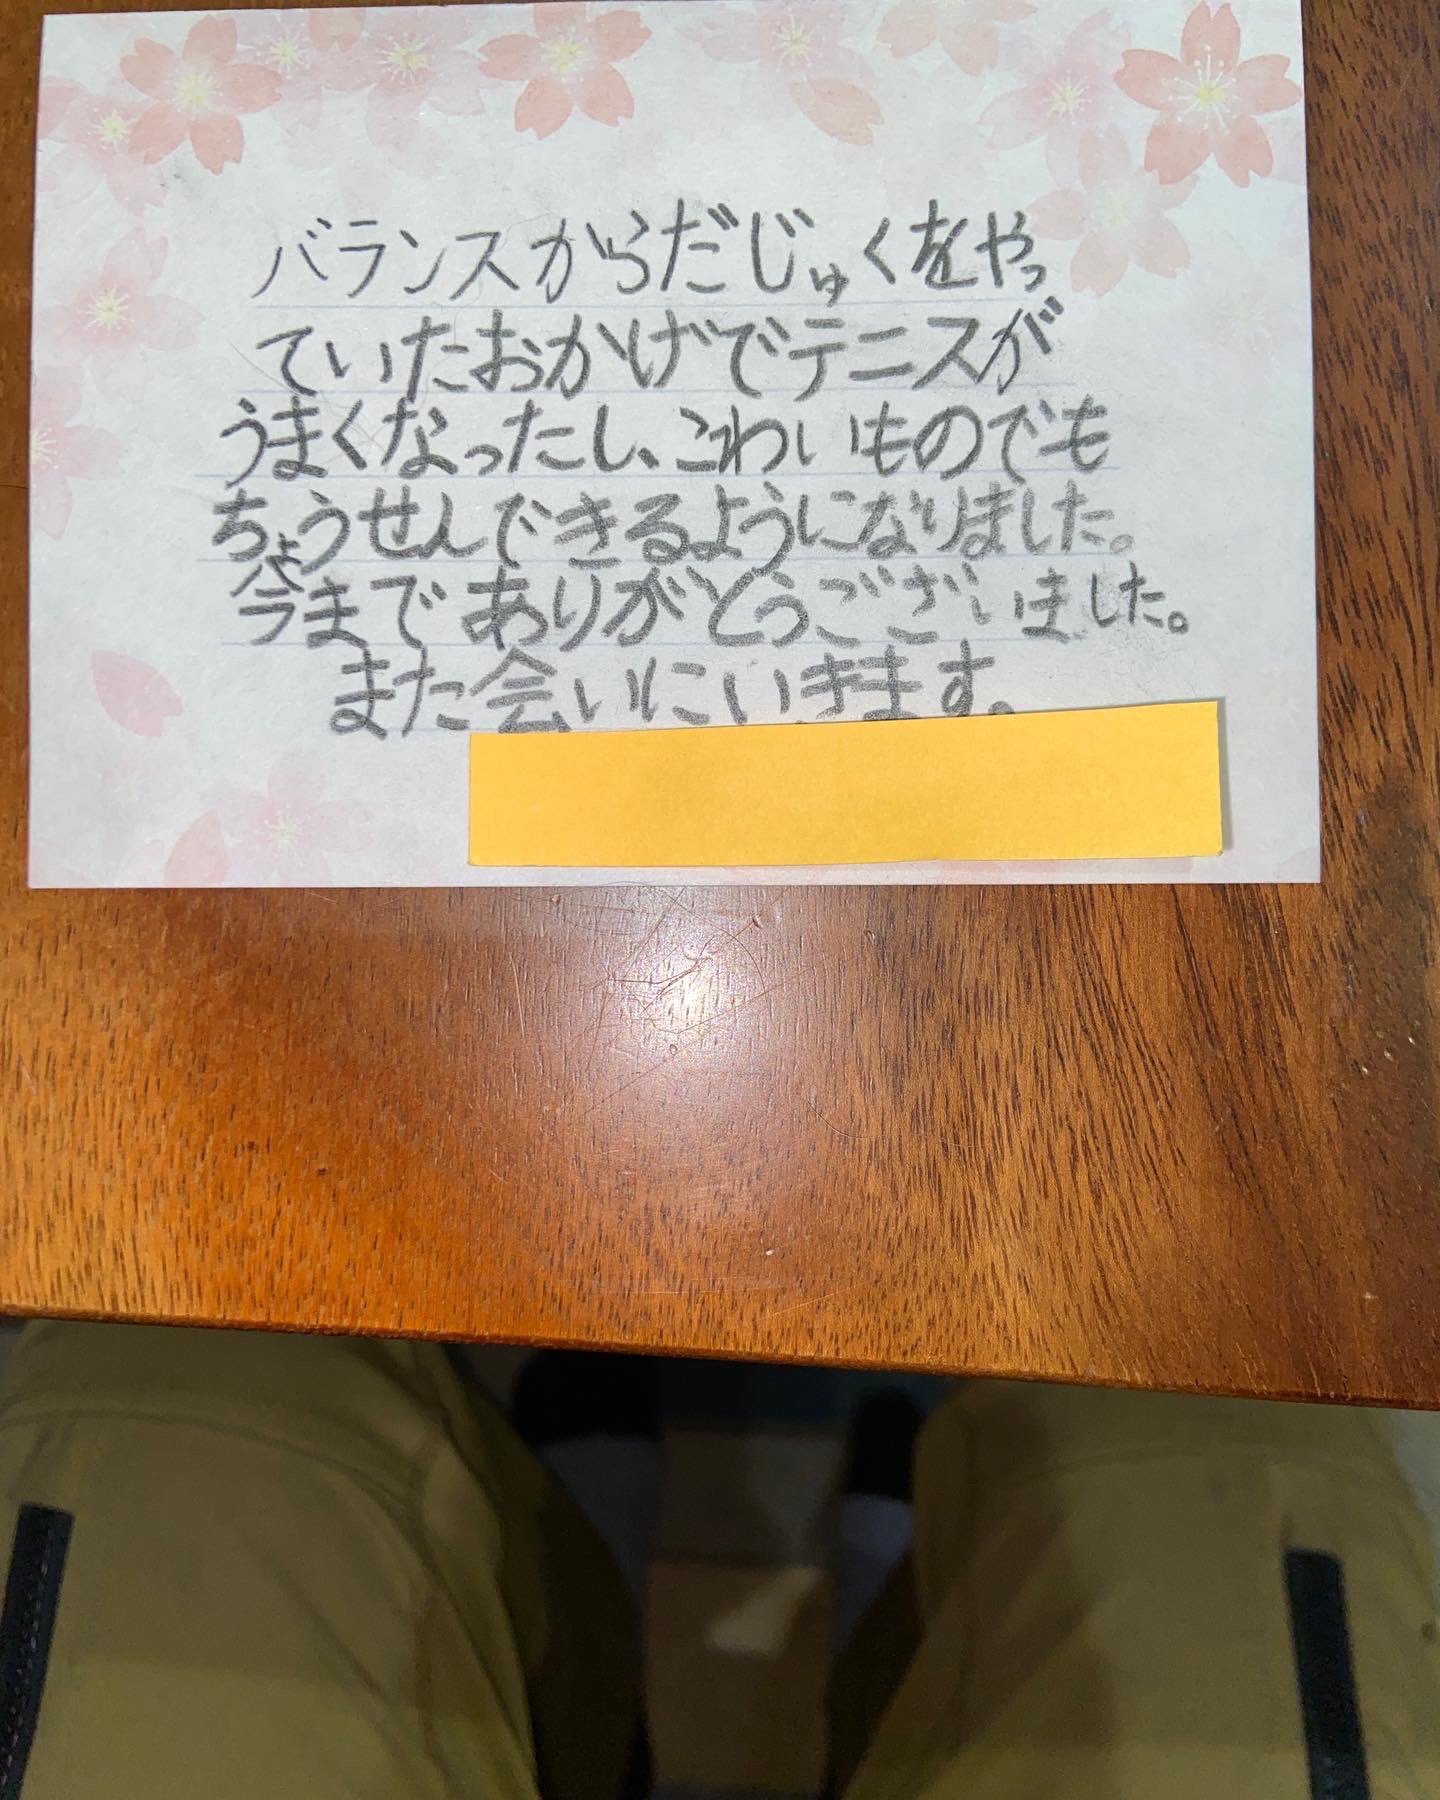 バランスからだじゅくをやっ
ていたおかげでテニスが
うまくなったし、こわいものでも
ちょうせんできるようになりました。
今までありがとうございました。
また会いにいきます。